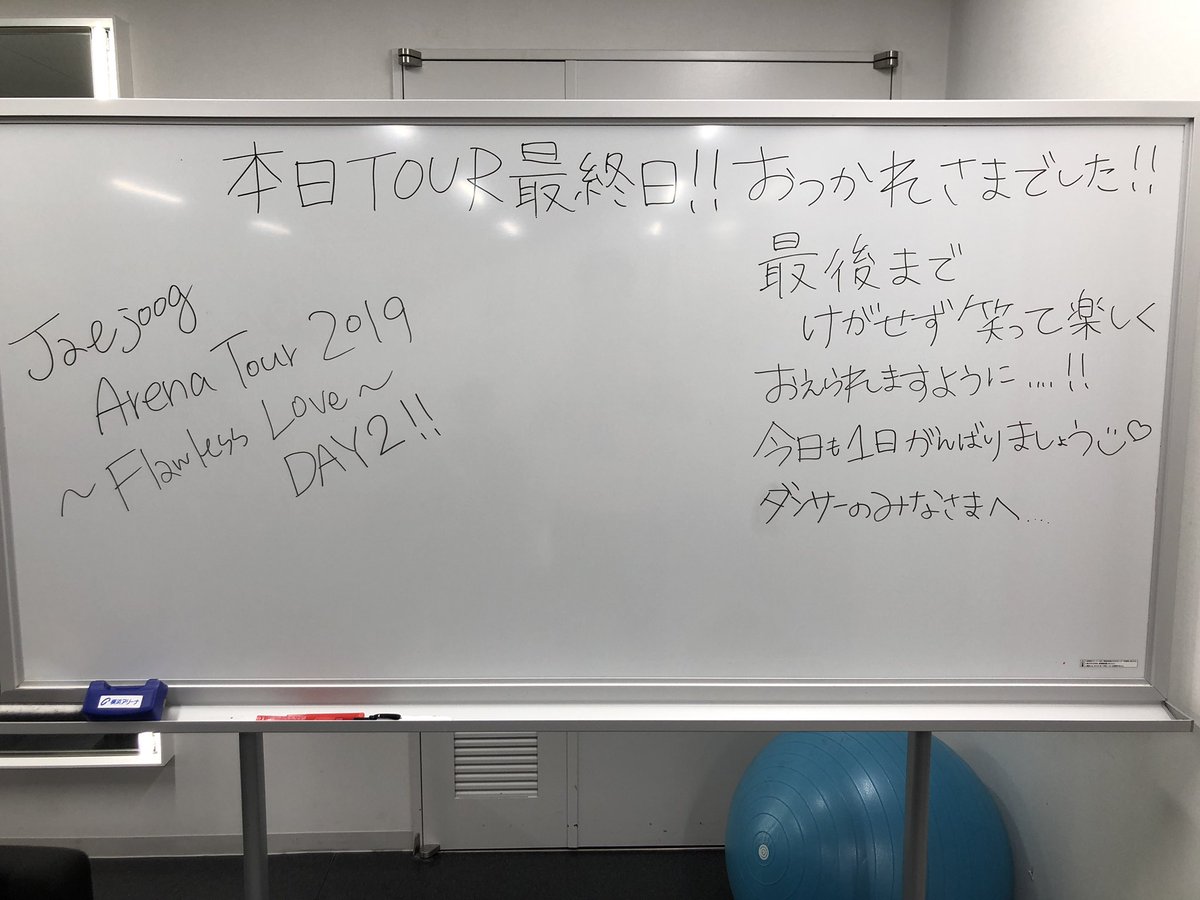 本日TOUR最終日!! おつかれさまでした!!
Jaejoog
Arena Tour 2019
～Flawless Love～
DAY2!!
最後まで
けがせず笑って楽しく
おえられますように....!!
今日も1日がんばりましょう
ダンサーのみなさまへ....
横浜アリーナ